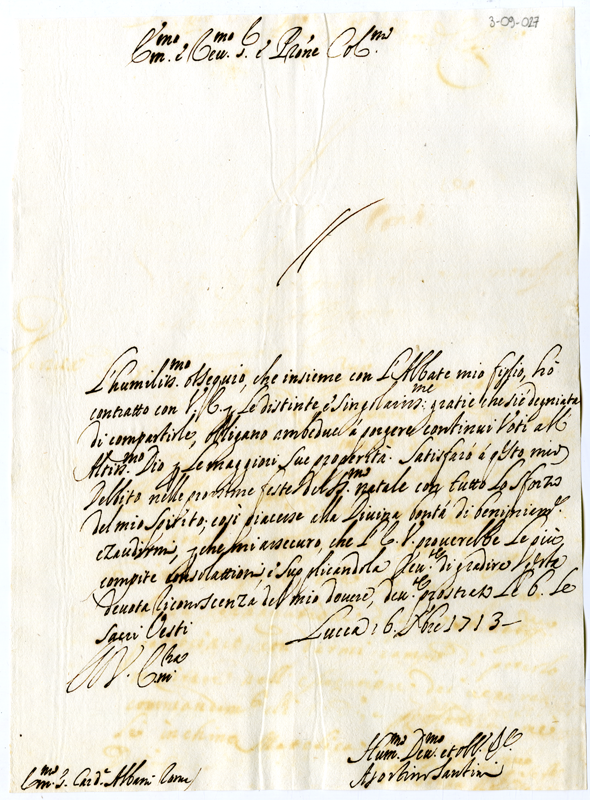 3-09-027
Em.mo e Rev.mo S. e P̃rone Col.mo
L'humiliss.mo ossequio, che insieme con L'Abbate mio figlio, hò
contratto con V. E. p Le distinte e singolariss.me gratie che si è degniata
di compartirle, obligano ambedue à porgere continui Voti all'
Altiss.mo Dio p Le maggiori sue prosperità. Satisfarò à q̃sto mio
Debbito nelle prossime feste del SS.mo natale con tutto Lo Sforzo
del mio Spirito; così piacesse alla Divina bontà di benigniam.e
ezaudirmi, p che mi assecuro, che L'E. V. proverebbe Le più
compite consolattioni, e Suplicandola dev.te di gradire q̃esta
devota riconoscenza del mio dovere, dev.te prostrato Le b. Le
Sacri Vesti
Lucca 16. Xbre 1713
D V. Em.za
Hum.mo Dev.mo et obb. Se.
Agostino Santini
Em.mo S. Card. Albani Roma